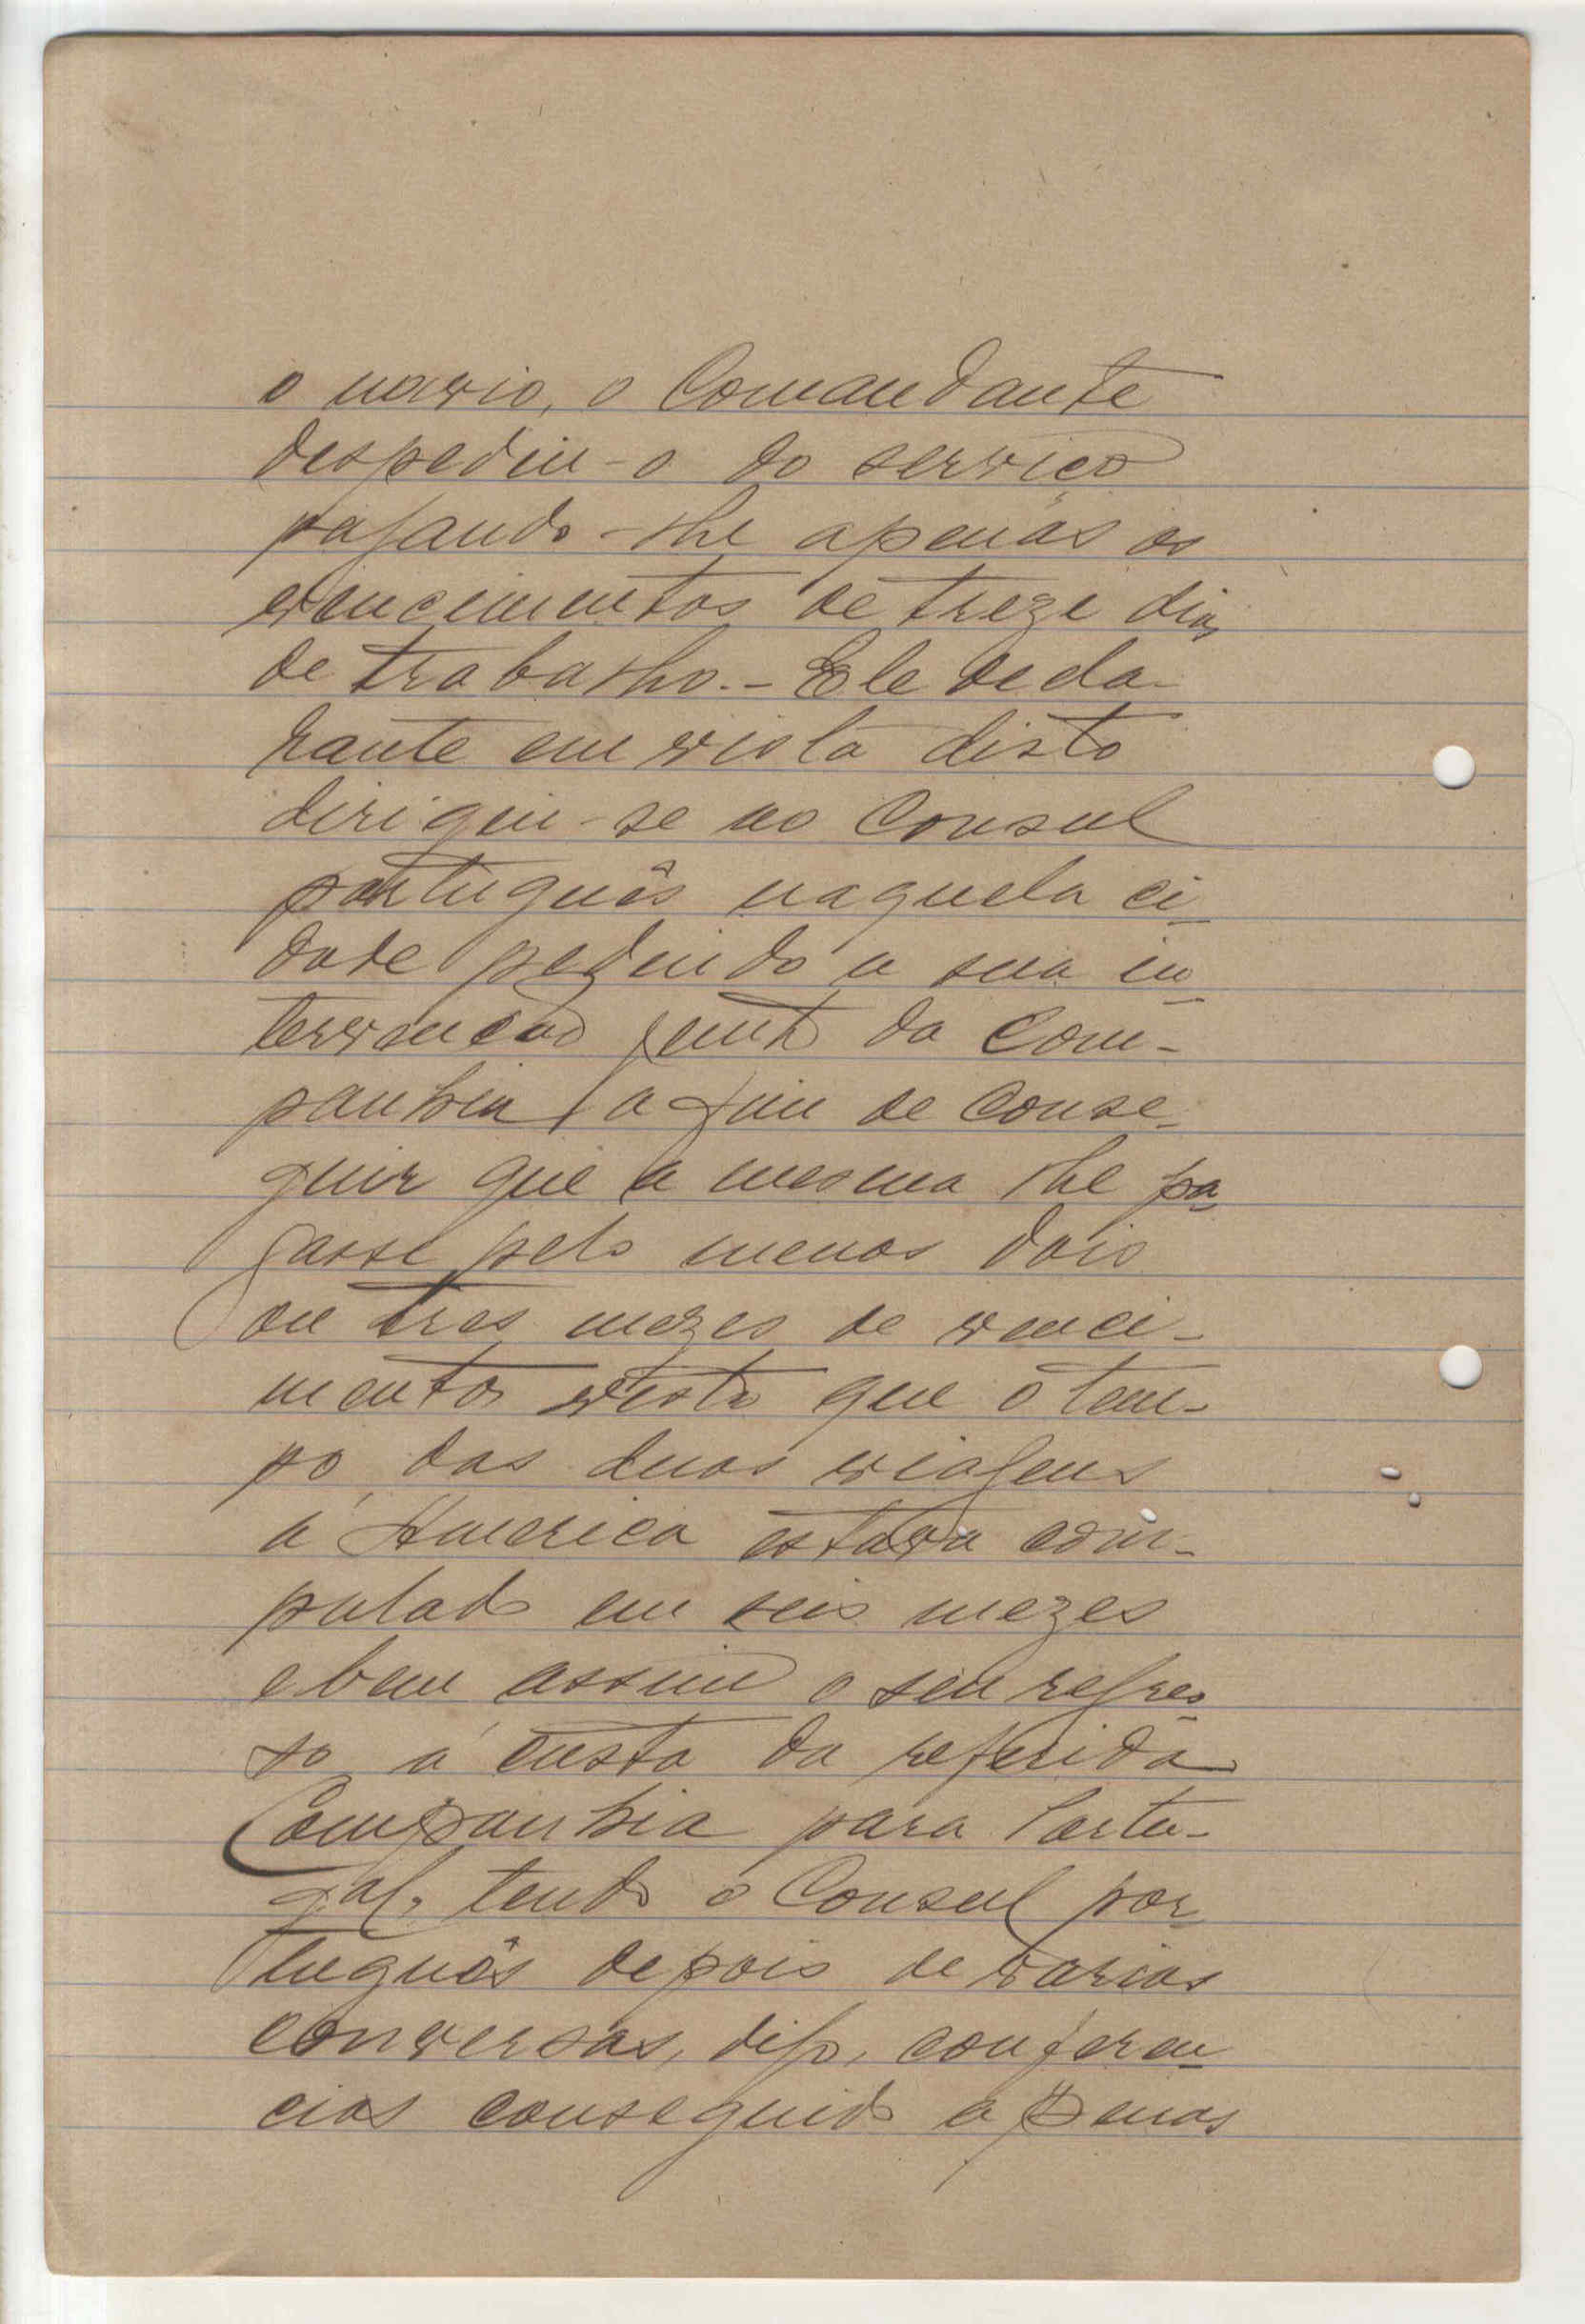 o navio, o Comandante
despediu-o do serviço
pagando-lhe apenas os
vencimentos de treze dias
de trabalho. - Ele decla-
rante em vista disto
dirigiu-se ao Consul
português naquela ci-
dade pedindo a sua in-
tervenção junto da Com-
panhia, a fim de conse-
guir que a mesma lhe pa-
gasse pelo menos dois
ou tres mezes de venci-
mentos visto que o tem-
po das duas viagens
á America estava com-
putado em seis mezes
e bem assim o seu regres-
so á custa da referida
Companhia para Portu-
gal, tendo o Consul por-
tuguês depois de varias
conversas, digo, conferen-
cias conseguido apenas